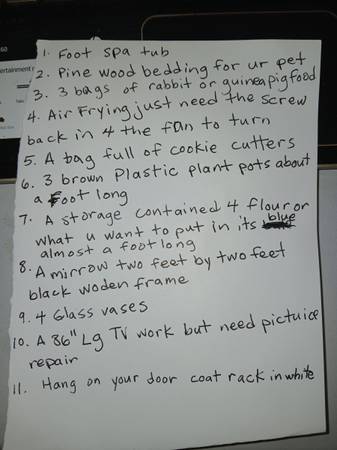 60
ertainment
1. Foot spa tub
2. Pine wood bedding for ur pet
3. 3 bags of rabbit or guineapigfood
4. Air Frying just need the screw
back in 4 the fan to turn
5. A bag full of cookie cutters
6. 3 brown Plastic plant pots about
a Foot long
7. A storage contained 4 flour or
what u want to put in its blue
almost a foot long
8. A mirrow two feet by two feet
black woden frame
9. 4 Glass vases
10. A 86" Lg TV work but need pictuice
repair
11. Hang on your door coat rack in white